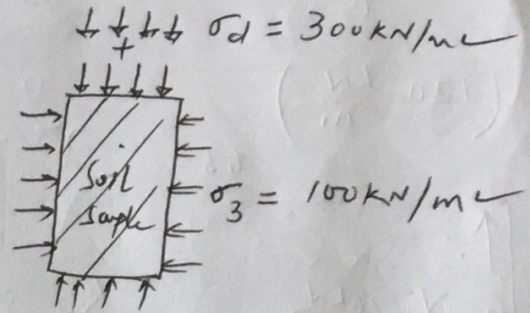 σd = 300kN/m²
+
Soil
Sample
σ3 = 100kN/m²